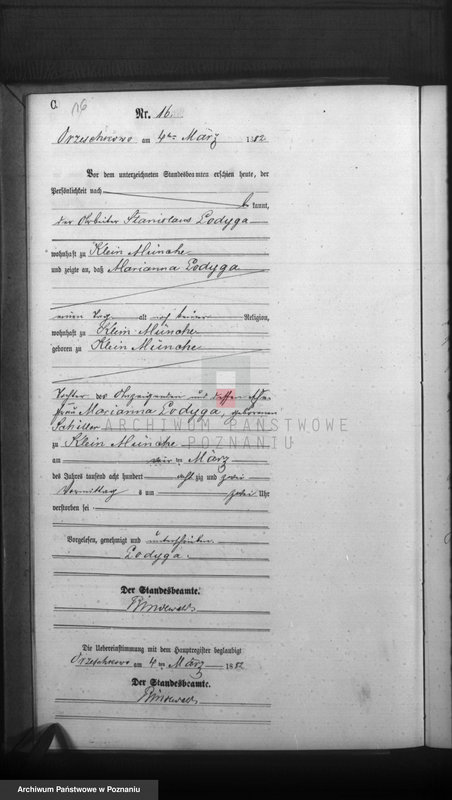 C.
16
Nr. 16.
Orzeschkowo am 4ten März 1882
Vor dem unterzeichneten Standesbeamten erschien heute, der
Persönlichkeit nach
b kannt,
der Arbeiter Stanislaus Lodyga
wohnhaft zu Klein Münche
und zeigte an, daß Marianna Lodyga
einen Tag alt noch keiner Religion,
wohnhaft zu Klein Münche
geboren zu Klein Münche
Tochter des Anzeigenden und dessen Ehe-
frau Marianna Lodyga, geborenen
Schiller
ARCHIWUM PAŃSTWOWE
W POZNANIU
zu Klein Münche
am vier ten März
des Jahres tausend acht hundert acht zig und zwei
Vormittag s um zwei Uhr
verstorben sei
Vorgelesen, genehmigt und unterschrieben
Lodyga
Der Standesbeamte.
Die Uebereinstimmung mit dem Hauptregister beglaubigt
Orzeschkowo am 4 ten März 1882
Der Standesbeamte.
Archiwum Państwowe w Poznaniu